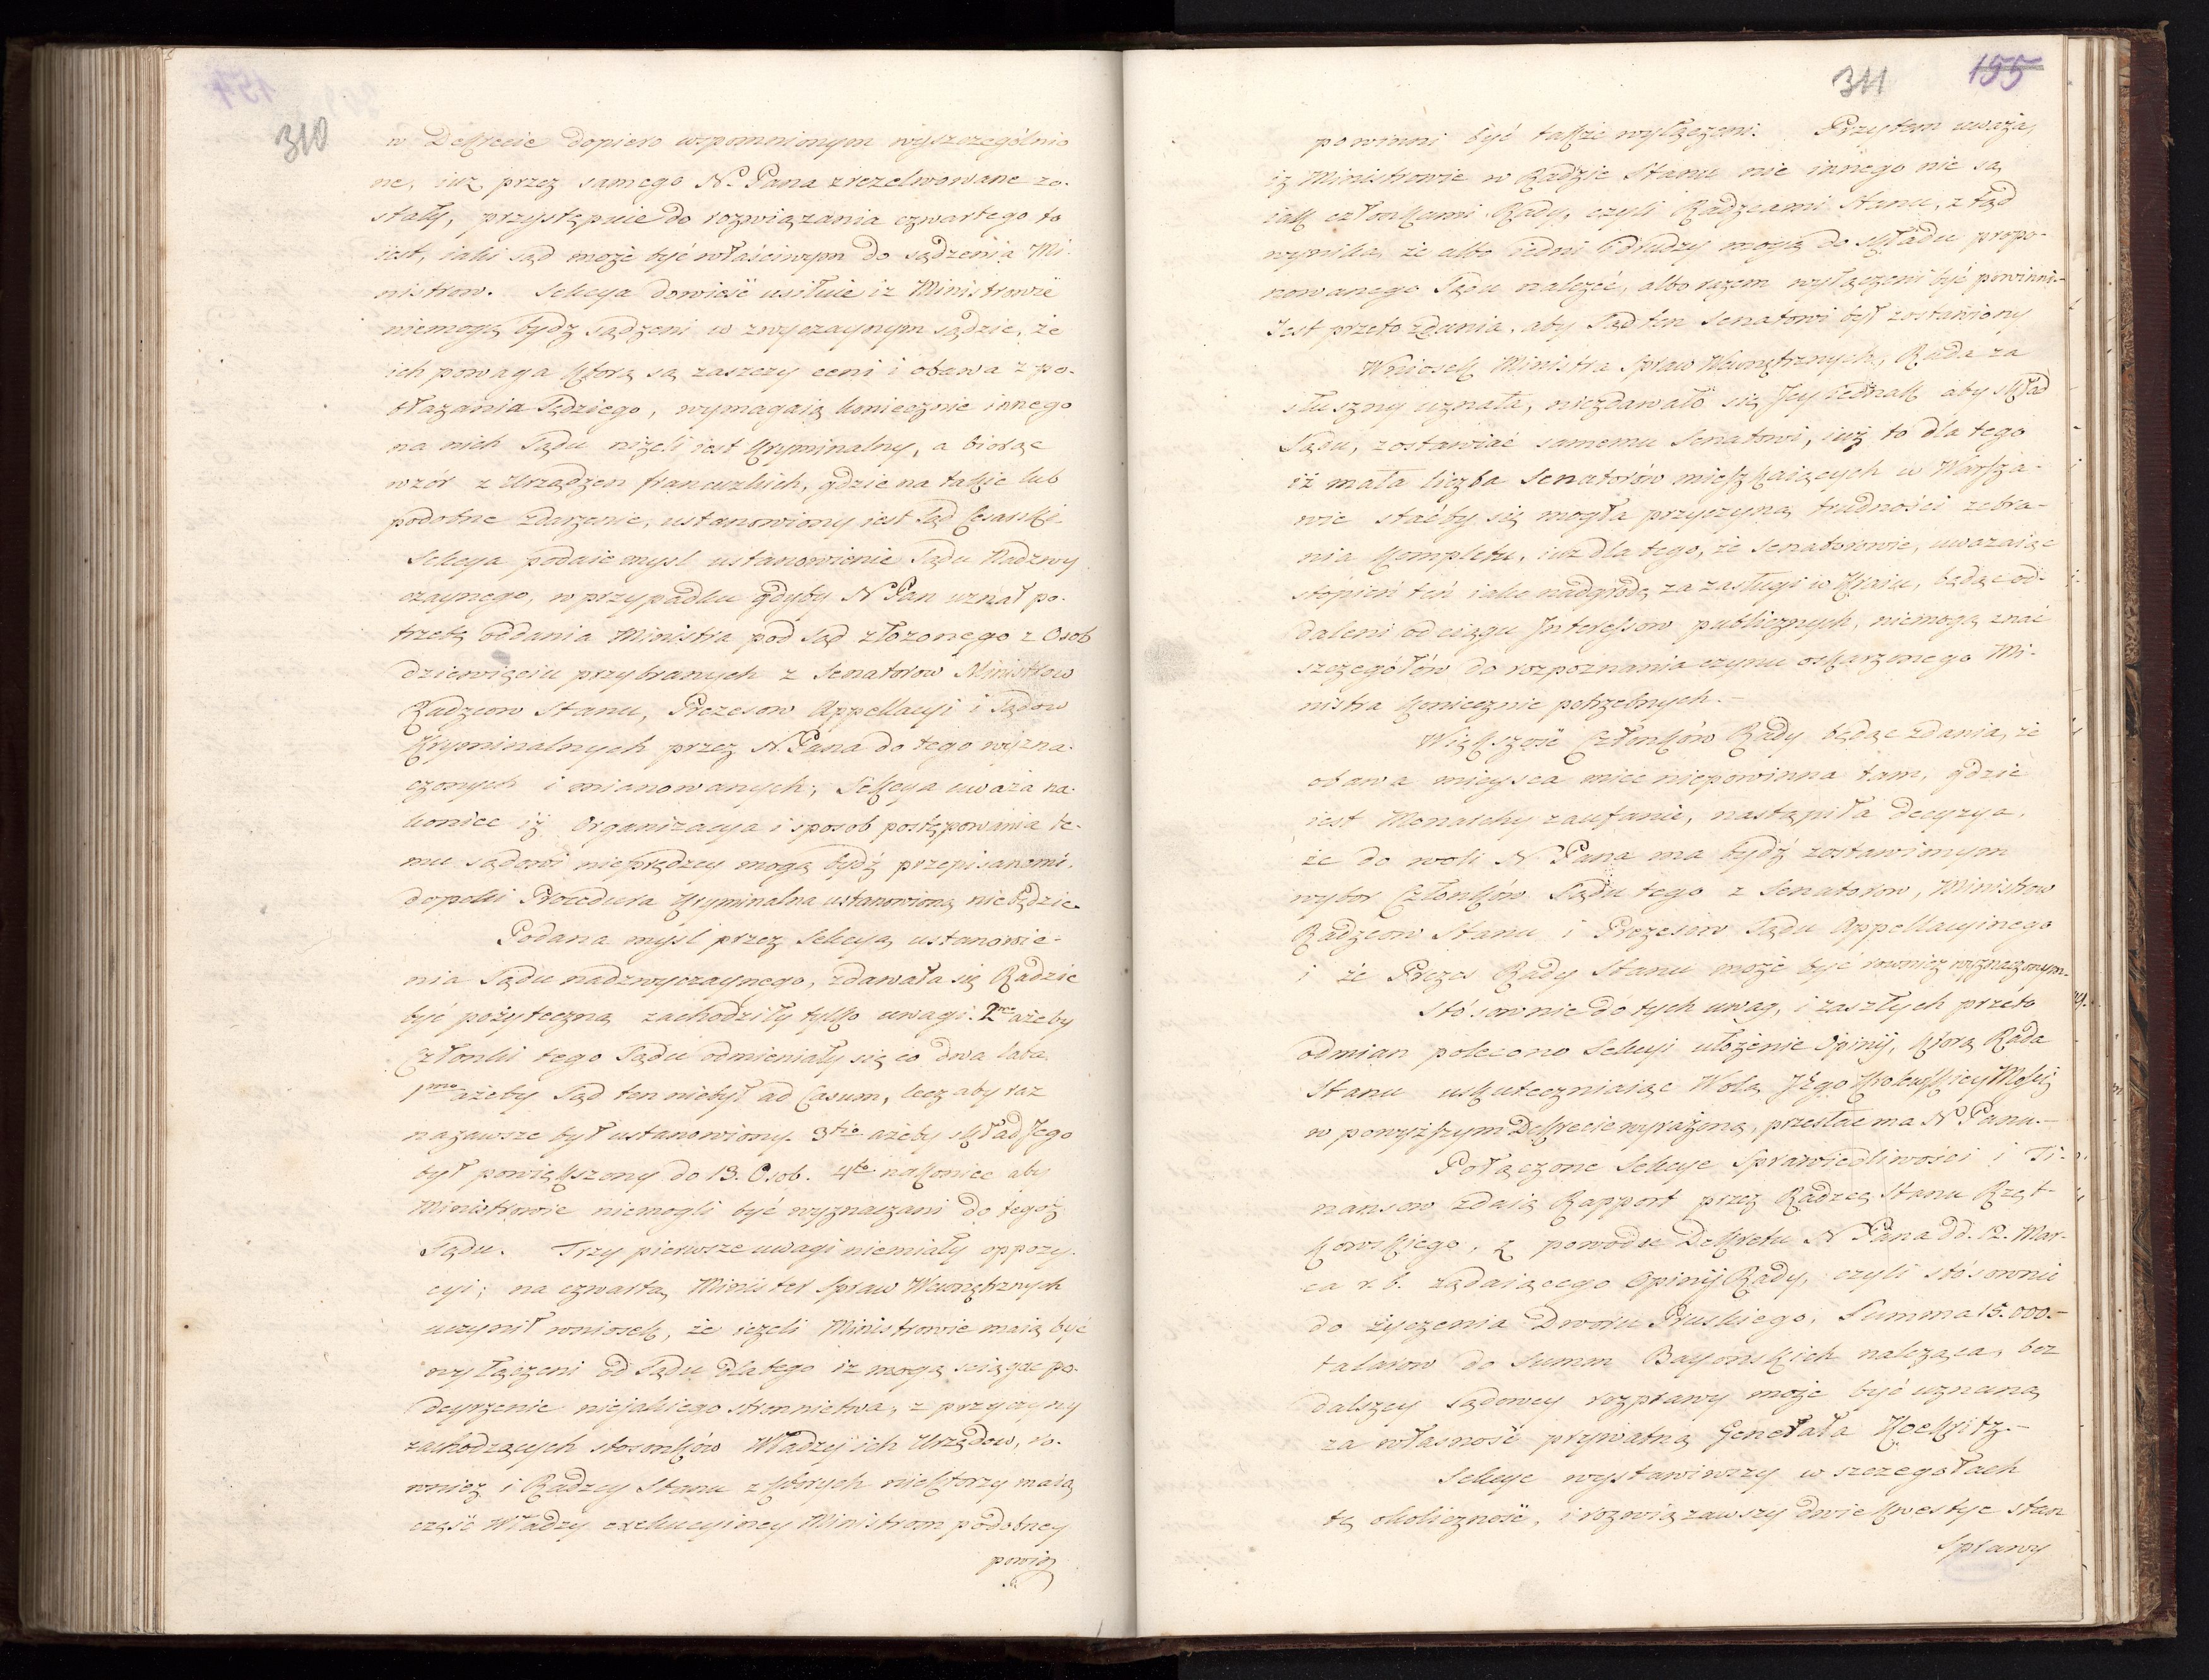 310
w Dekrecie dopiero wspomnionym wyszczególnio
ne, iuż przez samego N. Pana zrezelwowane zo-
stały, przystępuie do rozwiązania czwartego to
iest, iaki sąd może być właściwym do sądzenia Mi-
nistrow. Sekcya dowieść usiłuie iż Ministrowie
niemogą bydź sądzeni w zwyczaynym sądzie, że
ich powaga którą są zaszczyceni i obawa z po-
błażania Sędziego, wymagaią koniecznie innego
na nich Sądu niżeli iest Kryminalny, a biorąc
wzór z Urządzen francuzkich, gdzie na takie lub
podobne zdarzenie, ustanowiony iest Sąd Cesarski
Sekcya podaie mysl ustanowienie Sądu Nadzwy
czaynego, w przypadku gdyby N Pan uznał po-
trzebę oddania Ministra pod sąd złożonego z Osob
dziewięciu przybranych z Senatorow Ministrow
Radzcow Stanu, Prezesow Appellacyi i Sądow
Kryminalnych przez N. Pana do tego wyzna-
czonych i mianowanych; Sekcya uważa na-
koniec iż Organizacya i sposob postępowania te-
mu sądowi nieprędzey mogą bydź przepisanemi,
dopoki Procedura Kryminalna ustanowioną niebędzie.
Podana myśl przez Sekcyą ustanowie-
nia Sądu nadzwyczaynego, zdawała się Radzie
być pożyteczną zachodziły tylko uwagi. 2do ażeby
Członki tego Sądu odmieniały się co dwa lata,
1mo ażeby Sąd ten niebył ad Casum, lecz aby raz
nazawsze był ustanowiony. 3tio ażeby skład Jego
był powiększony do 13. Osob. 4to nakoniec aby
Ministrowie niemogli być wyznaczani do tegoż
Sądu. Trzy pierwsze uwagi niemiały oppozy-
cyi; na czwartą Minister Spraw Wewnętrznych
uczynił wniosek, że ieżeli Ministrowie maią być
wyłączeni od Sądu dlatego iż mogą sciągac po-
deyrzenie niejakiego stronnictwa, z przyczyny
zachodzących stosonków Władzy ich Urzędow, ro-
wnież i Radzcy Stanu z których niektorzy maią
część Władzy exekucyiney Ministrom podobney
powin
311 155
powinni być także wyłączeni. Przytem uważa,
iż Ministrowie w Radzie Stanu nie innego nie są
iak członkami Rady, czyli Radzcami Stanu, z tąd
wynika, że albo iedni i drudzy mogą do składu propo-
nowanego Sądu należeć, albo razem wyłączeni być powinni.-
Jest przeto zdania, aby Sąd ten Senatowi był zostawiony
Wniosek Ministra Spraw Wewnętrznych, Rada za
słuszny uznała, niezdawało się Jey iednak aby skład
Sądu, zostawiać samemu Senatowi, iuż to dla tego
iż mała liczba Senatorów mieszkaiących w Warsza-
wie staćby się mogła przyczyną trudności zebra-
nia kompletu, iuż dla tego, że Senatorowie, uważaiąc
stopień ten iako nadgrodę za zasługi w Kraiu, będąc od-
daleni od ciągu Interessow publicznych, niemogą znać
szczegółów do rozpoznania czynu oskarzonego Mi-
nistra koniecznie potrzebnych.-
Większość Członków Rady będąc zdania, że
obawa mieysca mieć niepowinna tam, gdzie
iest Monarchy zaufanie, nastąpiła decyzya,
że do woli N. Pana ma bydź zostawionym
wybor Członków Sądu tego z Senatorow, Ministrow
Radzcow Stanu i Prezesow Sądu Appellacyinego
i że Prezes Rady Stanu może być rownież wyznaczonym.-
Stósownie do tych uwag, i zaszłych przeto
odmian polecono Sekcyi ułożenie Opinij, którą Rada
Stanu uskuteczniaiąc Wolą Jego Krolewskiey Mości
w powyższym Dekrecie wyrażoną, przesłać ma N Panu.-
Połączone Sekcye Sprawiedliwości i Fi-
nansow zdaią Rapport przez Radzcę Stanu Rzęt-
kowskiego, z powodu Dekretu N Pana dd. 12. Mar-
ca r. b. żądaiącego Opinij Rady, czyli stósownie
do życzenia Dworu Pruskiego, Summa 15.000.-
talarow do Summ Bayońskich należąca, bez
dalszey Sądowey rozprawy może być uznaną
za własność prywatną Generała Koekritz.-
Sekcye wystawiwszy w szczegołach
tę okoliczność, i rozwiązawszy dwie kwestye stan
Sprawy